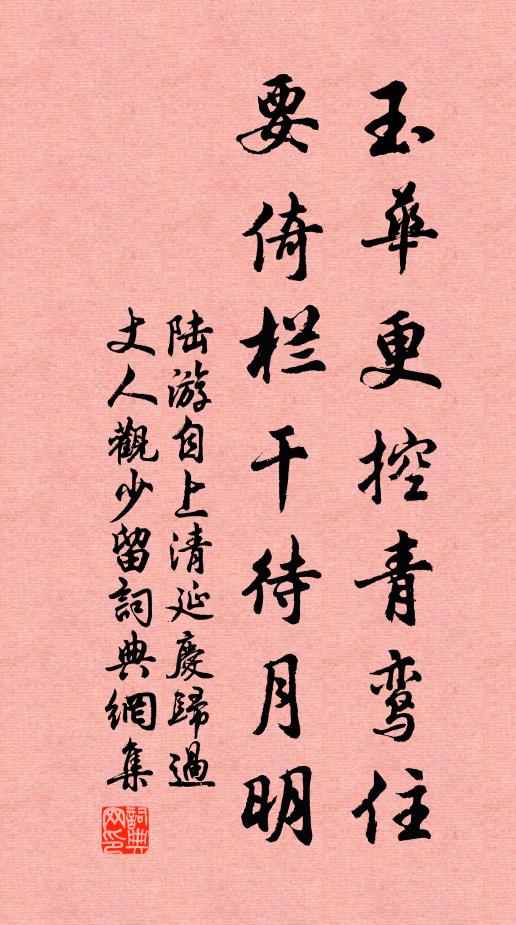 玉华更控青鸾住
要倚栏干待月明
陆游自上清延慶歸過
丈人觀少留詞典網集
詞典
网印